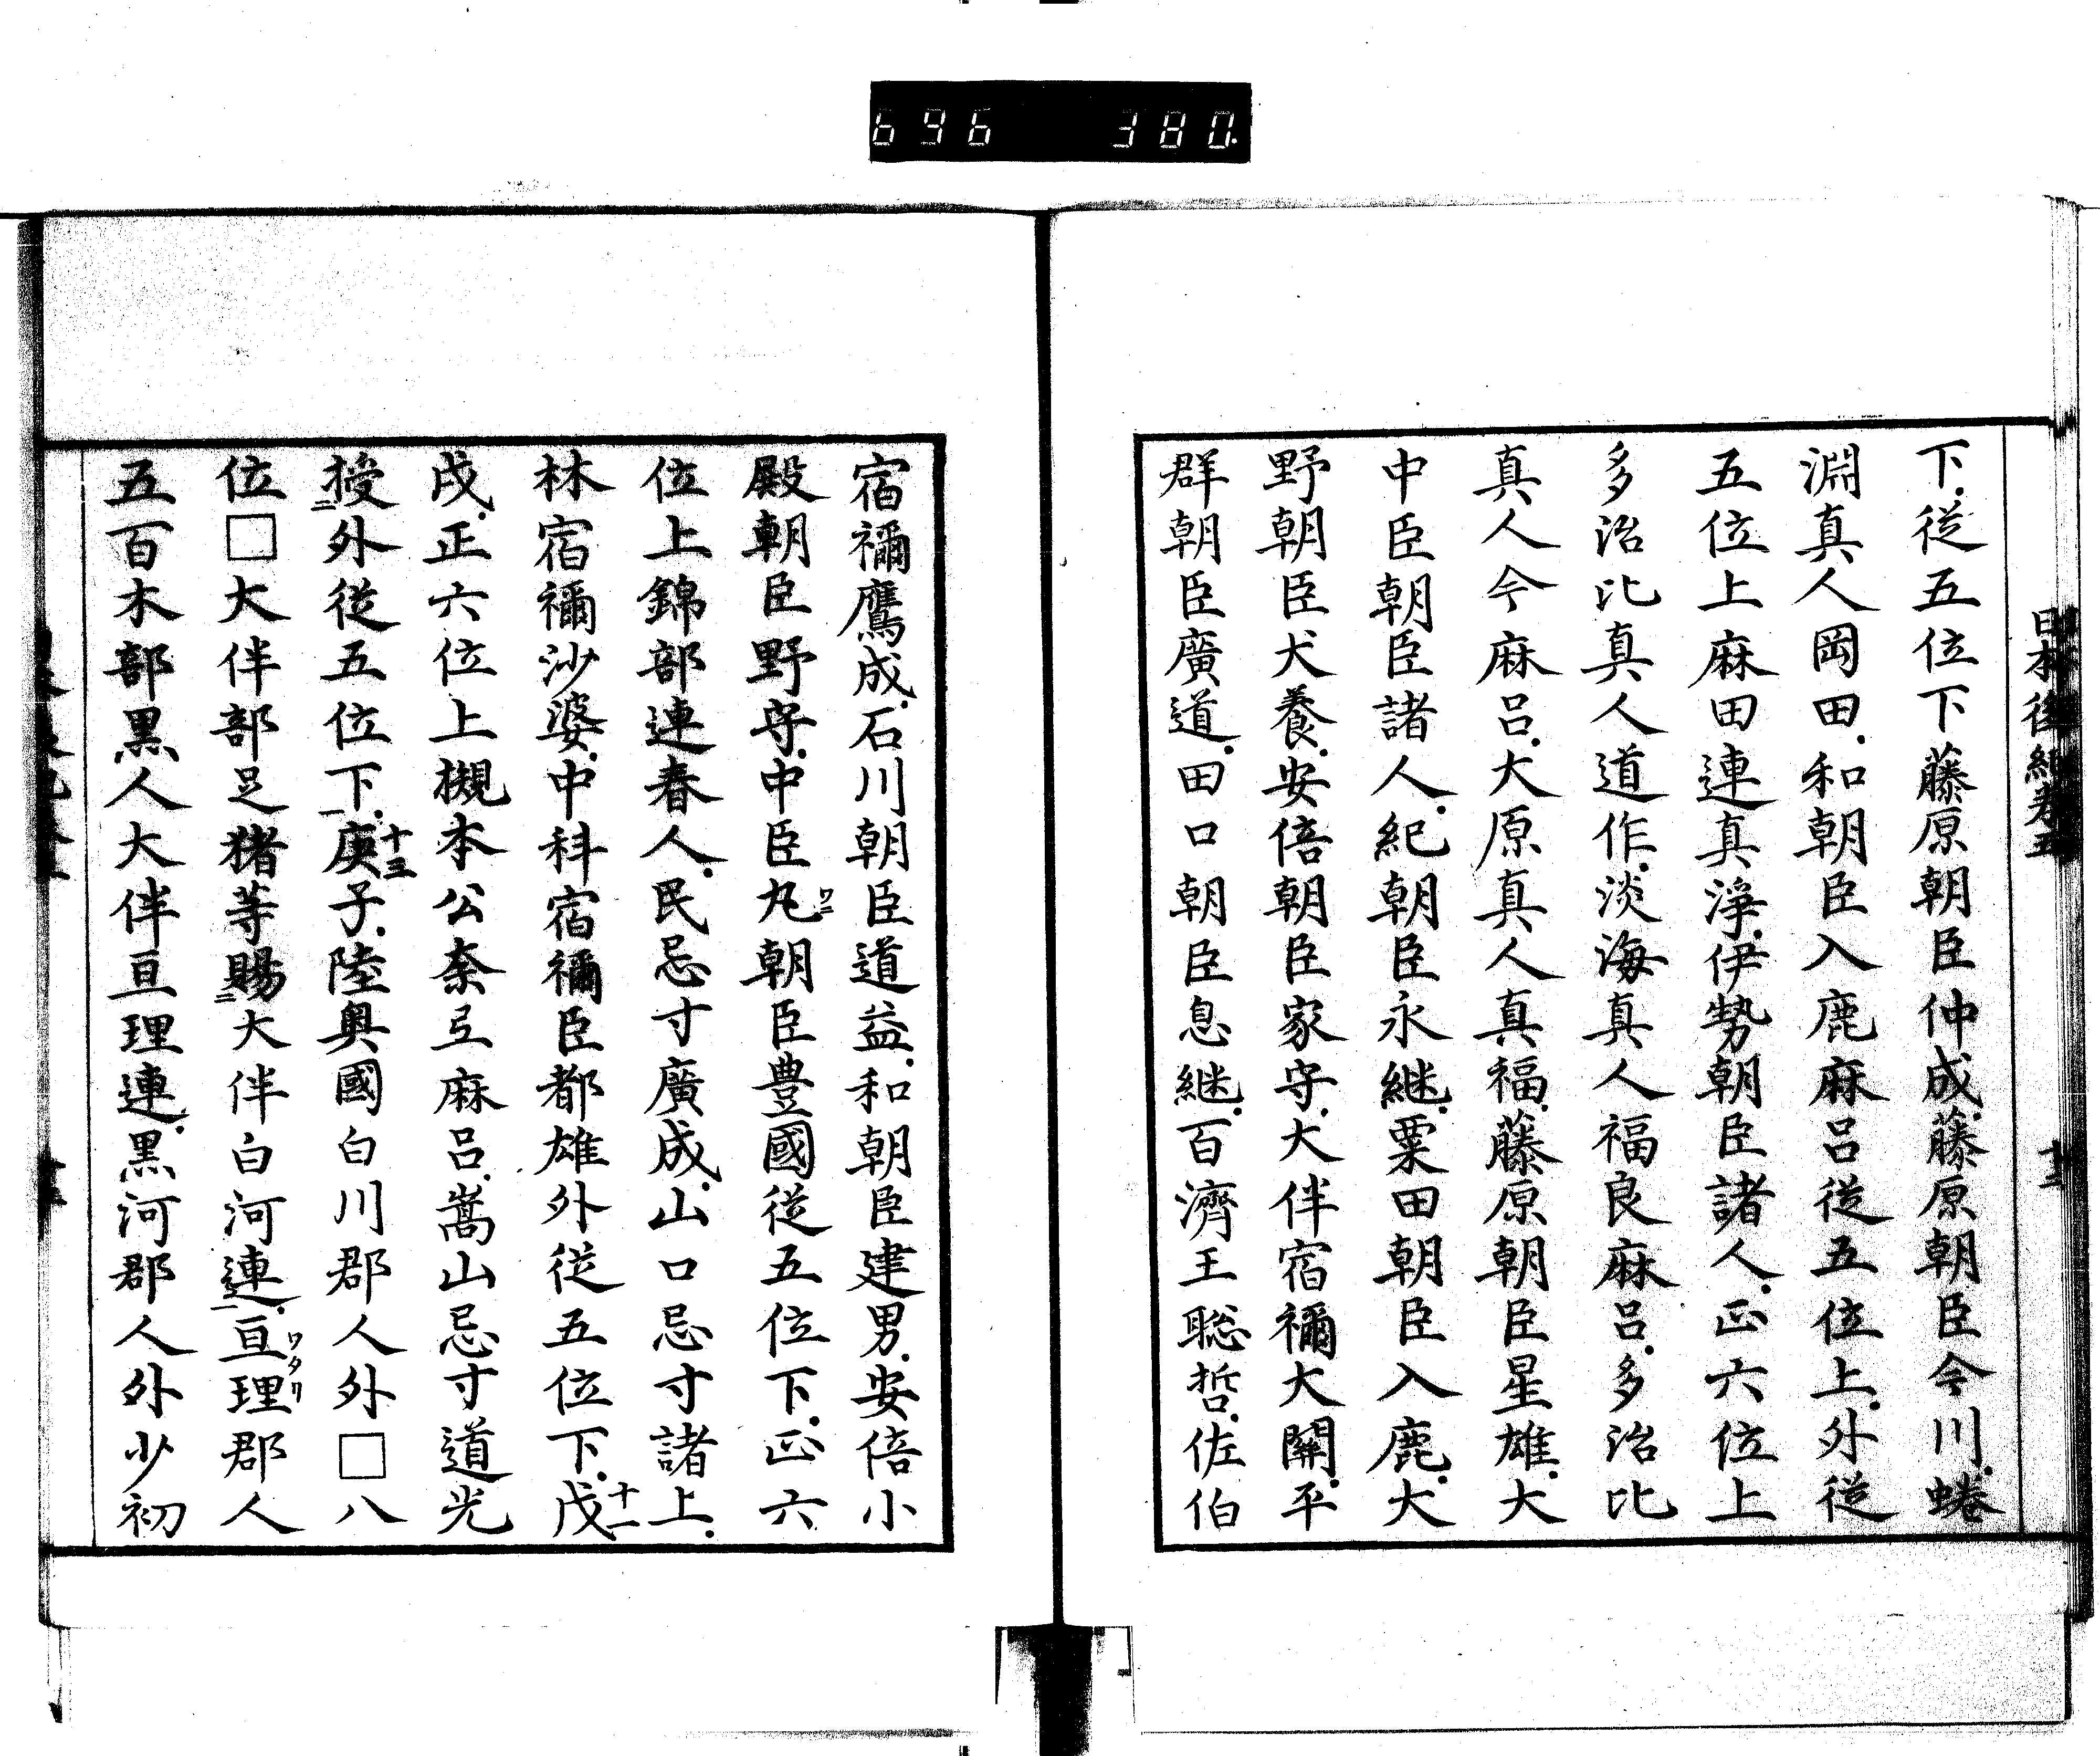 696 380.
日本後紀卷五
十二
下從五位下藤原朝臣仲成藤原朝臣今川蜷
淵真人岡田和朝臣入鹿麻呂從五位上外從
五位上麻田連真淨伊勢朝臣諸人正六位上
多治比真人道作淡海真人福良麻呂多治比
真人今麻呂大原真人真福藤原朝臣星雄大
中臣朝臣諸人紀朝臣永継粟田朝臣入鹿大
野朝臣犬養安倍朝臣家守大伴宿禰大關平
群朝臣廣道田口朝臣息継百濟王聡哲佐伯
宿禰鷹成石川朝臣道益和朝臣建男安倍小
殿朝臣野守中臣丸ワニ朝臣豊國從五位下正六
位上錦部連春人民忌寸廣成山口忌寸諸上
林宿禰沙婆中科宿禰臣都雄外從五位下戊十一
戌正六位上槻本公奈弖麻呂嵩山忌寸道光
授二外從五位下一庚十三子陸奥國白川郡人外□八
位□大伴部足猪等賜二大伴白河連一亘理ワタリ郡人
五百木部黒人大伴亘理連黒河郡人外少初